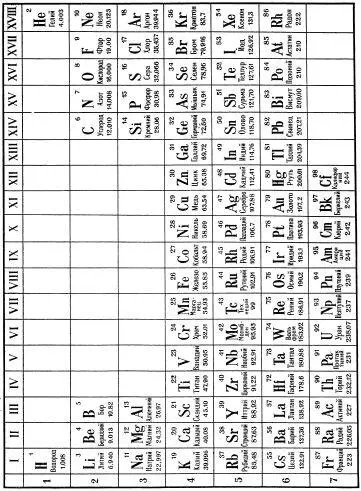 I II III IV V VI VII VIII IX X XI XII XIII XIV XV XVI XVII XVIII
1
1 H Водород 1.008
2 He Гелий 4.003
2
3 Li Литий 6.940
4 Be Берилл 9.013
5 B Бор 10.82
6 C Углерод 12.010
7 N Азот 14.008
8 O Кислород 16.000
9 F Фтор 19.00
10 Ne Неон 20.183
3
11 Na Натрий 22.997
12 Mg Магний 24.32
13 Al Алюминий 26.97
14 Si Кремний 28.06
15 P Фосфор 30.98
16 S Сера 32.066
17 Cl Хлор 35.457
18 Ar Аргон 39.944
4
19 K Калий 39.096
20 Ca Кальций 40.08
21 Sc Скандий
22 Ti Титан 47.90
23 V Ванадий 50.95
24 Cr Хром 52.01
25 Mn Марганец 54.93
26 Fe Железо 55.85
27 Co Кобальт 58.94
28 Ni Никель 58.69
29 Cu Медь 63.54
30 Zn Цинк 65.38
31 Ga Галлий 69.72
32 Ge Германий 72.60
33 As Мышьяк 74.91
34 Se Селен 78.96
35 Br Бром 79.916
36 Kr Криптон 83.7
5
37 Rb Рубидий 85.48
38 Sr Стронций 87.63
39 Y Иттрий 88.92
40 Zr Цирконий 91.22
41 Nb Ниобий 92.91
42 Mo 95.95
43 Tc 99
44 Ru Рутений
45 Rh Родий
46 Pd Палладий 106.7
47 Ag Серебро 107.88
48 Cd Кадмий 112.41
49 In Индий 114.76
50 Sn Олово 118.70
51 Sb Сурьма
52 Te Теллур 127.61
53 I Иод 126.92
54 Xe Ксенон 131.3
6
55 Cs Цезий 132.91
56 Ba Барий 137.36
57 La Лантан 138.92
72 Hf 178.6
73 Ta Тантал 180.88
74 W Вольфрам 183.92
75 Re Рений
76 Os Осмий 190.2
77 Ir Иридий 193.1
78 Pt Платина
79 Au Золото 197.2
80 Hg Ртуть 200.61
81 Tl Таллий 204.39
82 Pb Свинец 207.21
83 Bi Висмут 209.00
84 Po Полоний 210
85 At Астатин 210
86 Rn Радон 222
7
87 Fr Франций 223
88 Ra Радий 226.05
89 Ac Актиний 227
90 Th Торий 232.12
91 Pa 231
92 U Уран 238.07
93 Np Нептуний 237
94 Pu Плутоний 239
95 Am Америций
96 Cm Кюрий 242
97 Bk 243
98 Cf 244